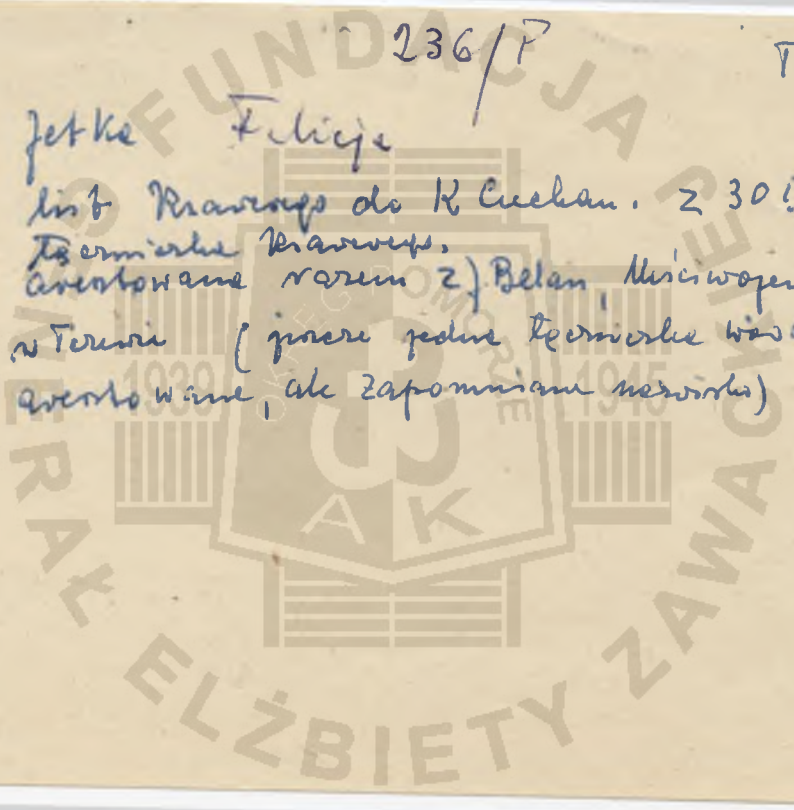 236/P T
Jetka Felicja
list Krawego do K Ciechan. z 30
Łączniczka Krawego.
aresztowana razem z) Belau,
w Toruniu (przez jedna łączniczka
aresztowana, ale zapomniane nazwisko)
FUNDACJA GENERAŁ ELŻBIETY ZAWACKIEJ
OKRĘG POMORZE
1939 1945
AK